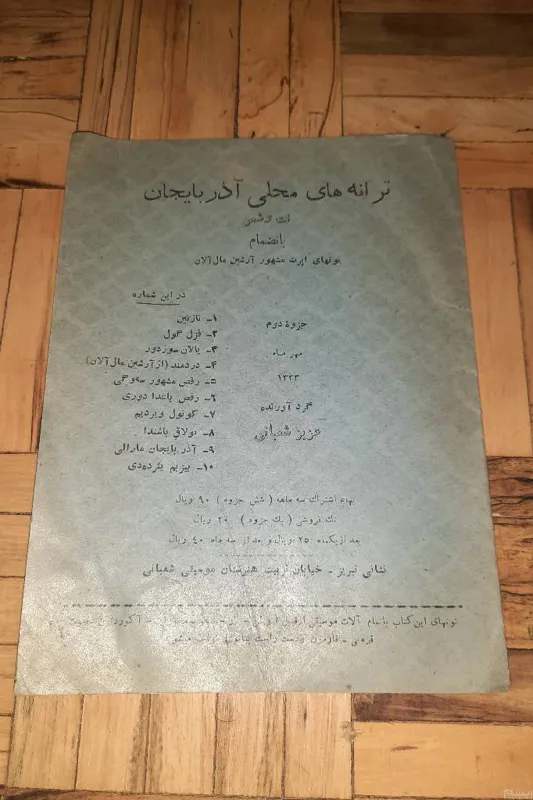 ترانه های محلی آذربایجان
نت و شعر
بانضمام
نوتهای اپرت مشهور آرشین مال آلان
در این شماره
۱- نازنین
۲- قزل گول
۳- یالان سوردور
۴- دردمند (از آرشین مال آلان)
۵- رقص مشهور سه‌وگی
۶- رقص یاغدا دوری
۷- کونول ویردیم
۸- بولاق باشندا
۹- آذربایجان مارالی
۱۰- بیزیم
جزوهٔ دوم
مهر ماه
۱۳۲۳
گرد آورنده
عزیز شعبانی
بهاء اشتراك سه ماهه (شش جزوه) ۹۰ ریال
تك فروشی (یك جزوه) ۲۰ ریال
بعد از یکماه ۲۵ ریال و بعد از سه ماه ۴۰ ریال
نشانی تبریز - خیابان تربیت هنرستان موسیقی شعبانی
نوتهای این کتاب با تمام آلات موسیقی